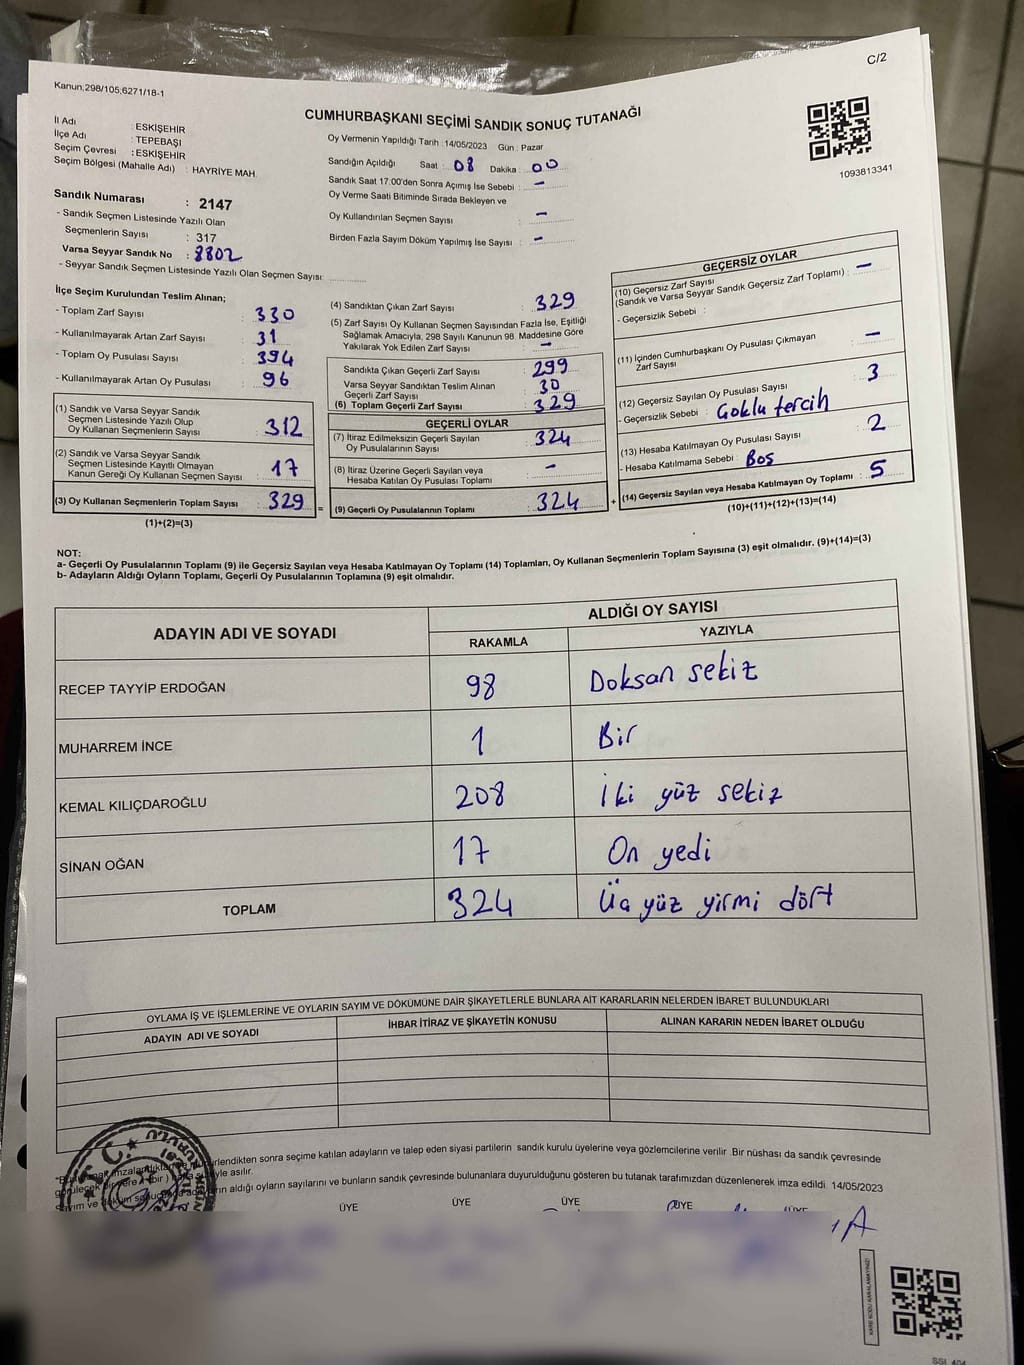 C/2
Kanun;298/105;6271/18-1
CUMHURBAŞKANI SEÇİMİ SANDIK SONUÇ TUTANAĞI
İl Adı : ESKİŞEHİR
İlçe Adı : TEPEBAŞI
Seçim Çevresi : ESKİŞEHİR
Seçim Bölgesi (Mahalle Adı) : HAYRİYE MAH.
Sandık Numarası : 2147
- Sandık Seçmen Listesinde Yazılı Olan
Seçmenlerin Sayısı : 317
Varsa Seyyar Sandık No : 8802
- Seyyar Sandık Seçmen Listesinde Yazılı Olan Seçmen Sayısı:
Oy Vermenin Yapıldığı Tarih : 14/05/2023 Gün : Pazar
Sandığın Açıldığı Saat : 08 Dakika : 00
Sandık Saat 17:00'den Sonra Açımış İse Sebebi : -
Oy Verme Saati Bitiminde Sırada Bekleyen ve
Oy Kullandırılan Seçmen Sayısı : -
Birden Fazla Sayım Döküm Yapılmış İse Sayısı : -
1093813341
İlçe Seçim Kurulundan Teslim Alınan;
- Toplam Zarf Sayısı : 330
- Kullanılmayarak Artan Zarf Sayısı : 31
- Toplam Oy Pusulası Sayısı : 394
- Kullanılmayarak Artan Oy Pusulası : 96
(1) Sandık ve Varsa Seyyar Sandık
Seçmen Listesinde Yazılı Olup
Oy Kullanan Seçmenlerin Sayısı : 312
(2) Sandık ve Varsa Seyyar Sandık
Seçmen Listesinde Kayıtlı Olmayan
Kanun Gereği Oy Kullanan Seçmen Sayısı : 17
(3) Oy Kullanan Seçmenlerin Toplam Sayısı : 329 =
(1)+(2)=(3)
(4) Sandıktan Çıkan Zarf Sayısı : 329
(5) Zarf Sayısı Oy Kullanan Seçmen Sayısından Fazla İse, Eşitliği
Sağlamak Amacıyla, 298 Sayılı Kanunun 98. Maddesine Göre
Yakılarak Yok Edilen Zarf Sayısı : -
Sandıkta Çıkan Geçerli Zarf Sayısı : 299
Varsa Seyyar Sandıktan Teslim Alınan
Geçerli Zarf Sayısı : 30
(6) Toplam Geçerli Zarf Sayısı : 329
GEÇERLİ OYLAR
(7) İtiraz Edilmeksizin Geçerli Sayılan
Oy Pusulalarının Sayısı : 324
(8) İtiraz Üzerine Geçerli Sayılan veya
Hesaba Katılan Oy Pusulası Toplamı : -
(9) Geçerli Oy Pusulalarının Toplamı : 324 +
GEÇERSİZ OYLAR
(10) Geçersiz Zarf Sayısı
(Sandık ve Varsa Seyyar Sandık Geçersiz Zarf Toplamı) : -
- Geçersizlik Sebebi :
(11) İçinden Cumhurbaşkanı Oy Pusulası Çıkmayan
Zarf Sayısı : -
(12) Geçersiz Sayılan Oy Pusulası Sayısı : 3
- Geçersizlik Sebebi : Çoklu tercih
(13) Hesaba Katılmayan Oy Pusulası Sayısı : 2
- Hesaba Katılmama Sebebi : Boş
(14) Geçersiz Sayılan veya Hesaba Katılmayan Oy Toplamı : 5
(10)+(11)+(12)+(13)=(14)
NOT:
a- Geçerli Oy Pusulalarının Toplamı (9) ile Geçersiz Sayılan veya Hesaba Katılmayan Oy Toplamı (14) Toplamları, Oy Kullanan Seçmenlerin Toplam Sayısına (3) eşit olmalıdır. (9)+(14)=(3)
b- Adayların Aldığı Oyların Toplamı, Geçerli Oy Pusulalarının Toplamına (9) eşit olmalıdır.
ADAYIN ADI VE SOYADI
ALDIĞI OY SAYISI
RAKAMLA YAZIYLA
RECEP TAYYİP ERDOĞAN 98 Doksan sekiz
MUHARREM İNCE 1 Bir
KEMAL KILIÇDAROĞLU 208 İki yüz sekiz
SİNAN OĞAN 17 On yedi
TOPLAM 324 Üç yüz yirmi dört
OYLAMA İŞ VE İŞLEMLERİNE VE OYLARIN SAYIM VE DÖKÜMÜNE DAİR ŞİKAYETLERLE BUNLARA AİT KARARLARIN NELERDEN İBARET BULUNDUKLARI
ADAYIN ADI VE SOYADI İHBAR İTİRAZ VE ŞİKAYETİN KONUSU ALINAN KARARIN NEDEN İBARET OLDUĞU
sonra seçime katılan adayların ve talep eden siyasi partilerin sandık kurulu üyelerine veya gözlemcilerine verilir. Bir nüshası da sandık çevresinde
asılır.
aldığı oyların sayılarını ve bunların sandık çevresinde bulunanlara duyurulduğunu gösteren bu tutanak tarafımızdan düzenlenerek imza edildi. 14/05/2023
ÜYE ÜYE ÜYE ÜYE ÜYE